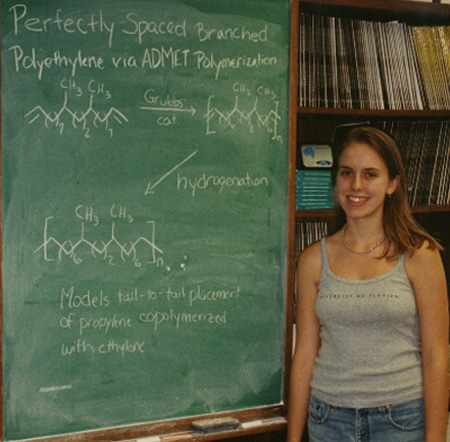 Perfectly Spaced Branched
Polyethylene via ADMET Polymerization
CH3 CH3
7 2 7
Grubbs'
cat
CH3 CH3
6 2 6 n
hydrogenation
CH3 CH3
6 2 6 n
Models tail-to-tail placement
of propylene copolymerized
with ethylene
UNIVERSITY OF FLORIDA